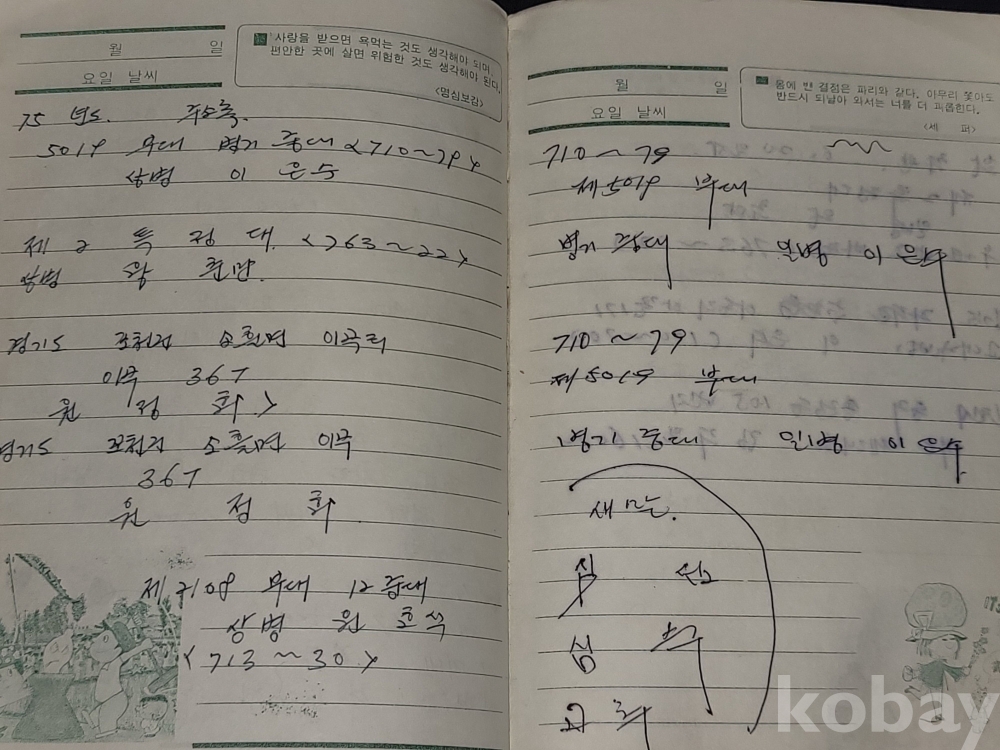 월 일
요일 날씨
사랑을 받으면 욕먹는 것도 생각해야 되며,
편안한 곳에 살면 위험한 것도 생각해야 된다.
〈명심보감〉
75 년도. 주소록.
5019 부대 병기 중대 <710~79>
상병 이 은수
제 2 특 정 대. <763~22>
상병 왕
경기도 포천군 소흘면 이곡리
이구 367
원 정 희 >
경기도 포천군 소흘면 이구
367
원 정 희
제 7108 부대 12 중대
상병 원 효석
<713~30>
월 일
요일 날씨
몸에 밴 결점은 파리와 같다. 아무리 쫓아도
반드시 되날아 와서는 너를 더 괴롭힌다.
〈세 퍼〉
710~79
제 5019 부대
병기 중대 일병 이 은수
710~79
제 5019 부대
병기 중대 일병 이 은수
새마을.
kobay